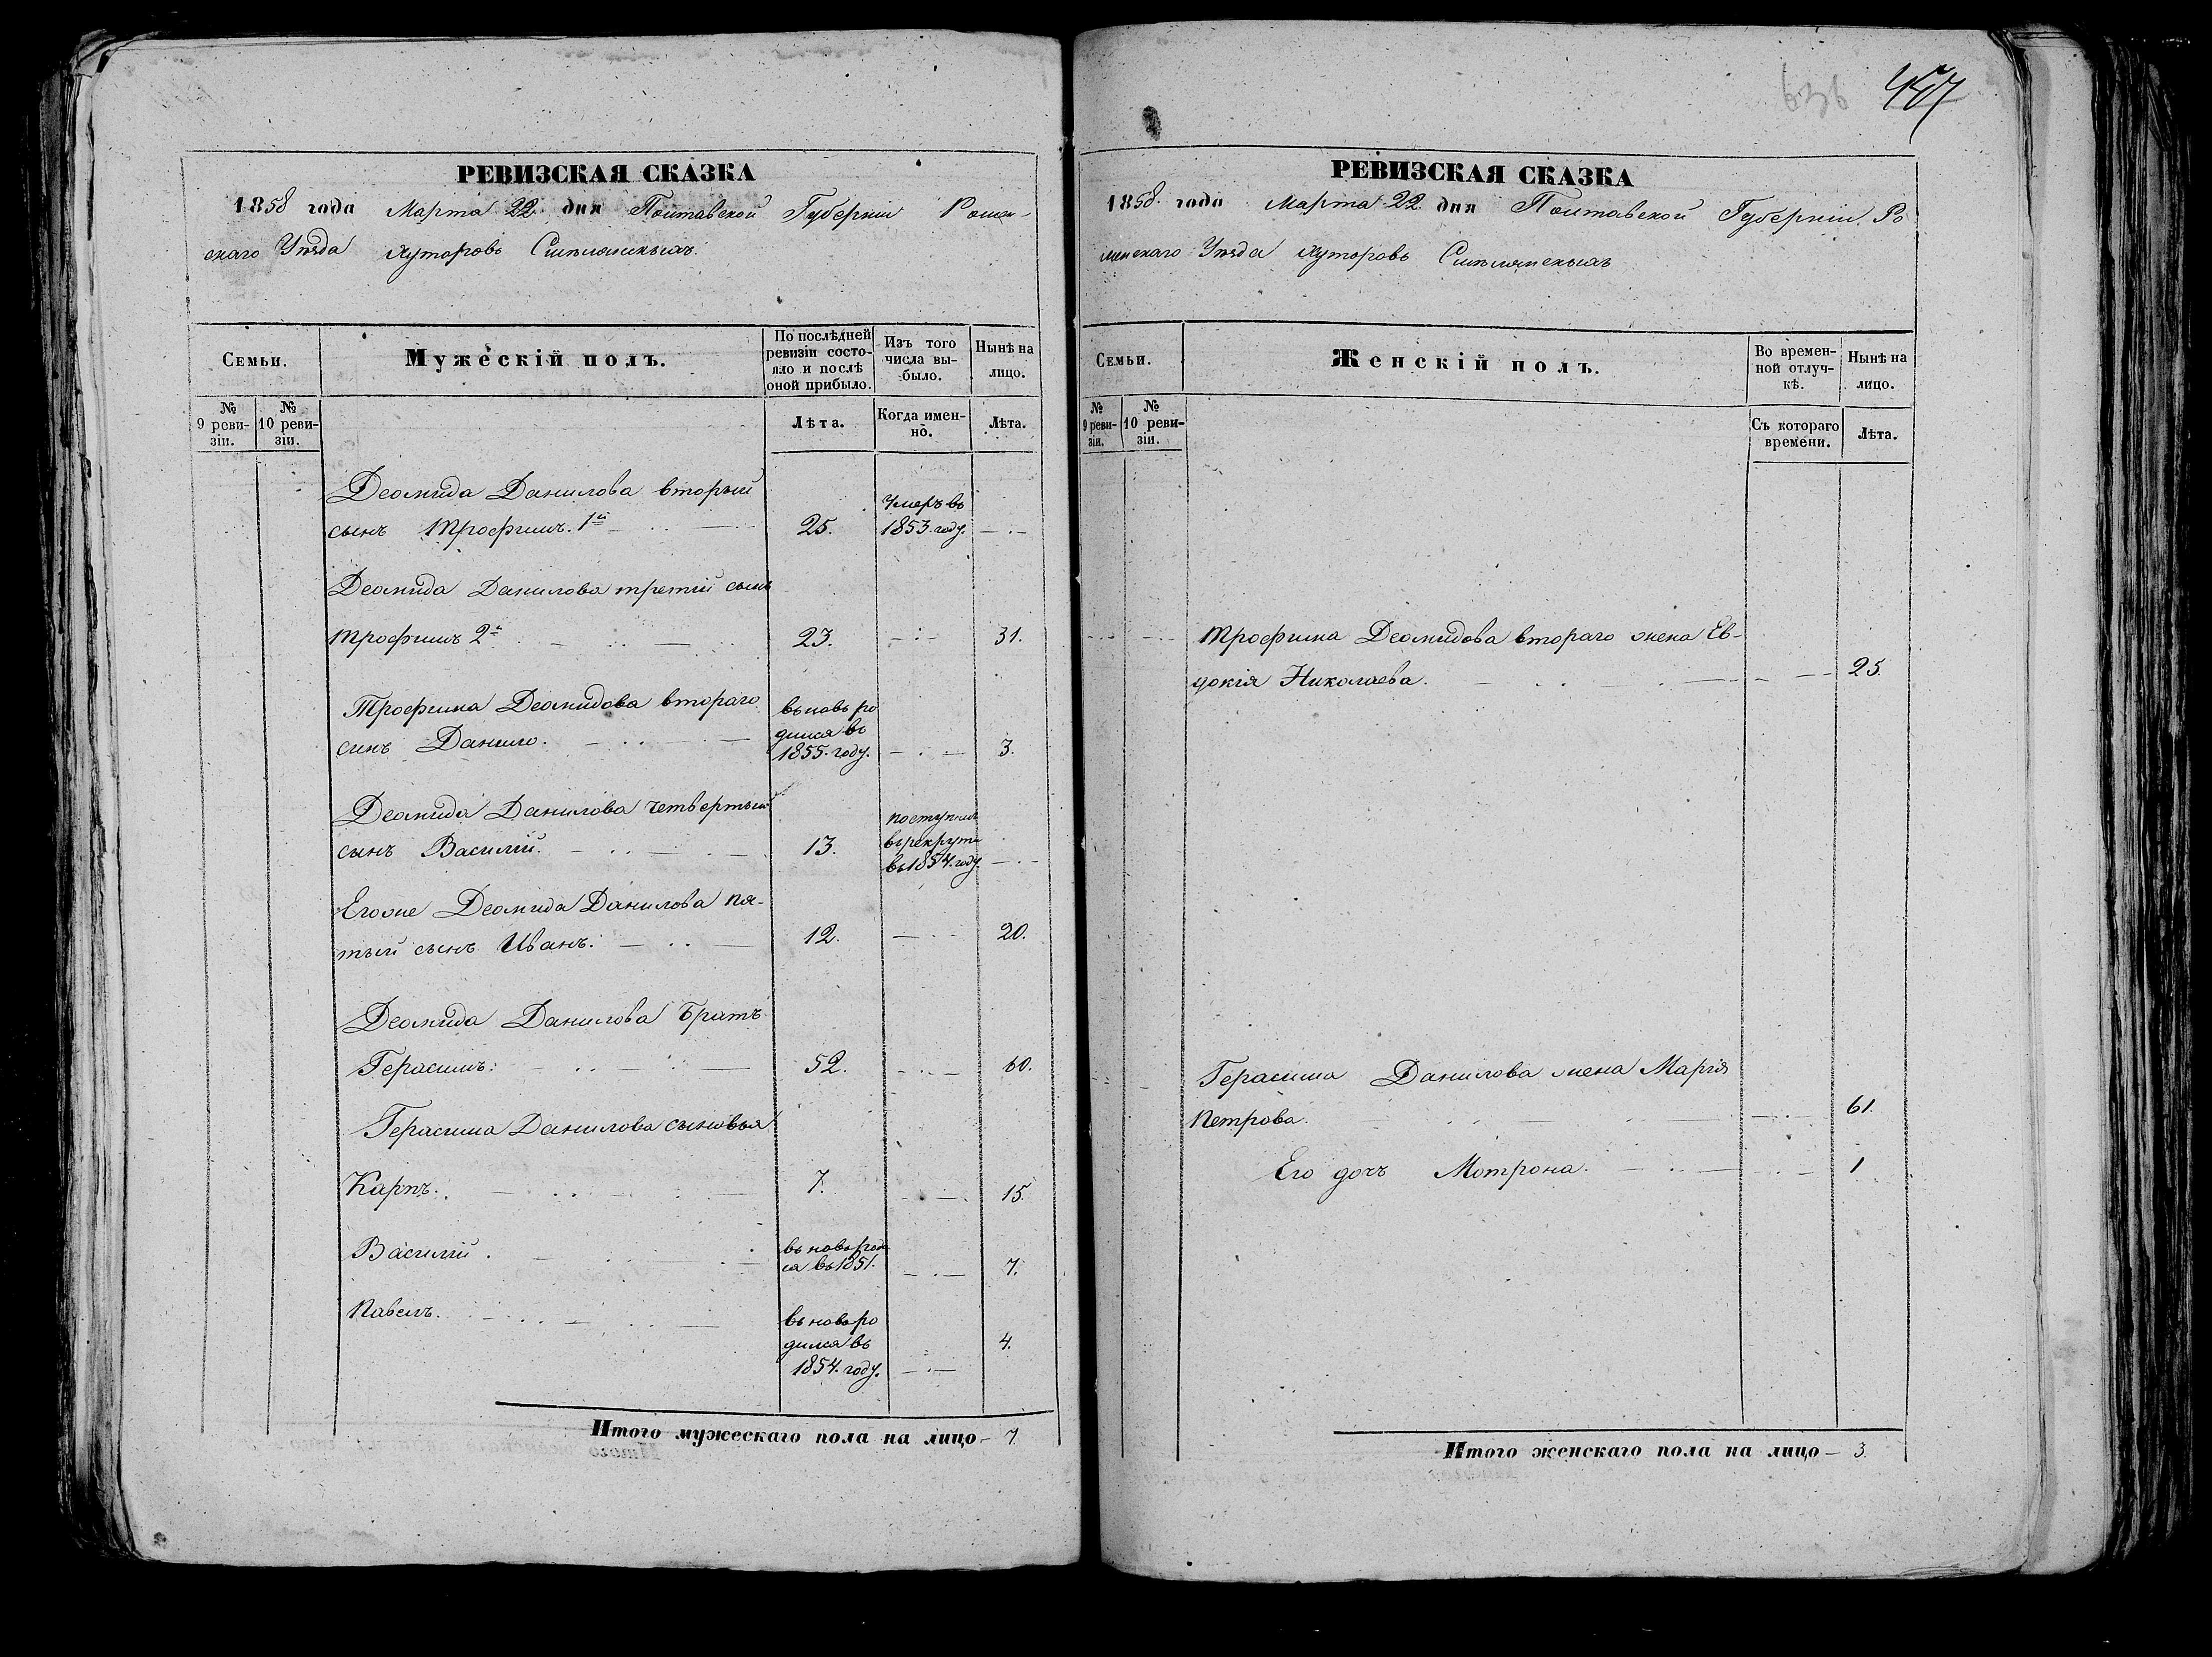 РЕВИЗСКАЯ СКАЗКА
1858 года Марта 22 дня Полтавской Губерніи Ромен-
скаго Уѣзда Хуторовъ Смѣлянскихъ
Семьи.
Мужескій полъ.
По послѣдней ревизіи состо-
яло и послѣ оной прибыло.
Изъ того числа вы-
было.
Нынѣ на лицо.
№ 9 реви-
зіи.
№ 10 реви-
зіи.
Лѣта.
Когда имен-
но.
Лѣта.
Деомида Данилова вторый
Умеръ въ
сынъ Трофимъ. 1й 25. 1853. году.
Деомида Данилова третій сынъ
Трофимъ 2й 23. 31.
Трофима Деомидова втораго
вьновь ро
синъ Данило.
дился въ
1855. году. 3.
Деомида Данилова четвертый
поступилъ
сынъ Василій. 13. въ рекруты
въ 1854. году
Егоже Деомида Данилова пя-
тый сынъ Иванъ. 12. 20.
Деомида Данилова братъ
Герасимъ: 52. 60.
Герасима Данилова сыновья
Карпъ. 7. 15.
Василій.
са въ 1851. 7.
Павелъ.
вьновь ро
дился въ 4.
1854. году.
Итого мужескаго пола на лицо 7.
636 457
РЕВИЗСКАЯ СКАЗКА
1858. года Марта 22 дня Полтавской Губерніи Ро
менскаго Уѣзда Хуторовъ Смѣлянскихъ
Семьи.
Женскій полъ.
Во времен-
ной отлуч-
кѣ.
Нынѣ на лицо.
№ 9 реви-
зіи.
№ 10 реви-
зіи.
Съ котораго времени.
Лѣта.
Трофима Деомидова втораго жена Ев-
докія Николаева. 25.
Герасима Данилова жена Марія
Петрова. 61.
Его дочъ Мотрона. 1
Итого женскаго пола на лицо 3.